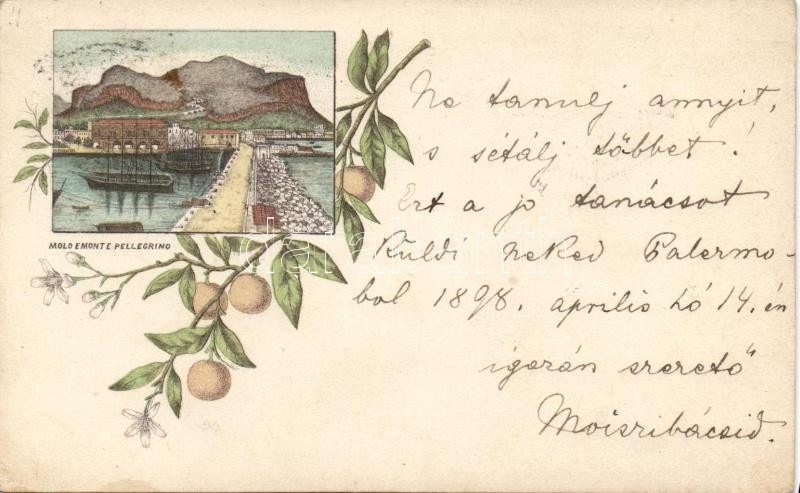 MOLO E MONTE PELLEGRINO
Ne tanulj annyit,
s sétálj többet!
Ezt a jó tanácsot
küldi neked Palermo-
bol 1898. április hó 14.én
igazán szerető
Moiszibácsid.